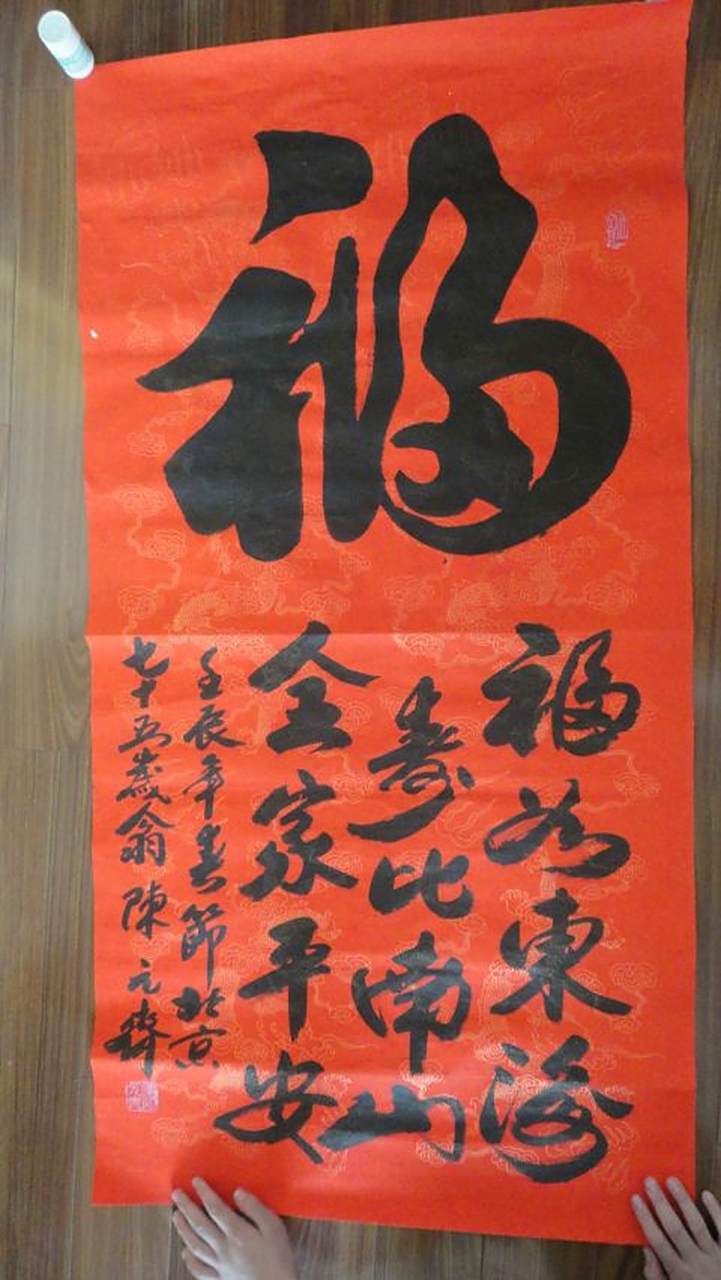 福
福如東海
壽比南山
全家平安
壬辰年春節北京
七十五歲翁 陳元齋